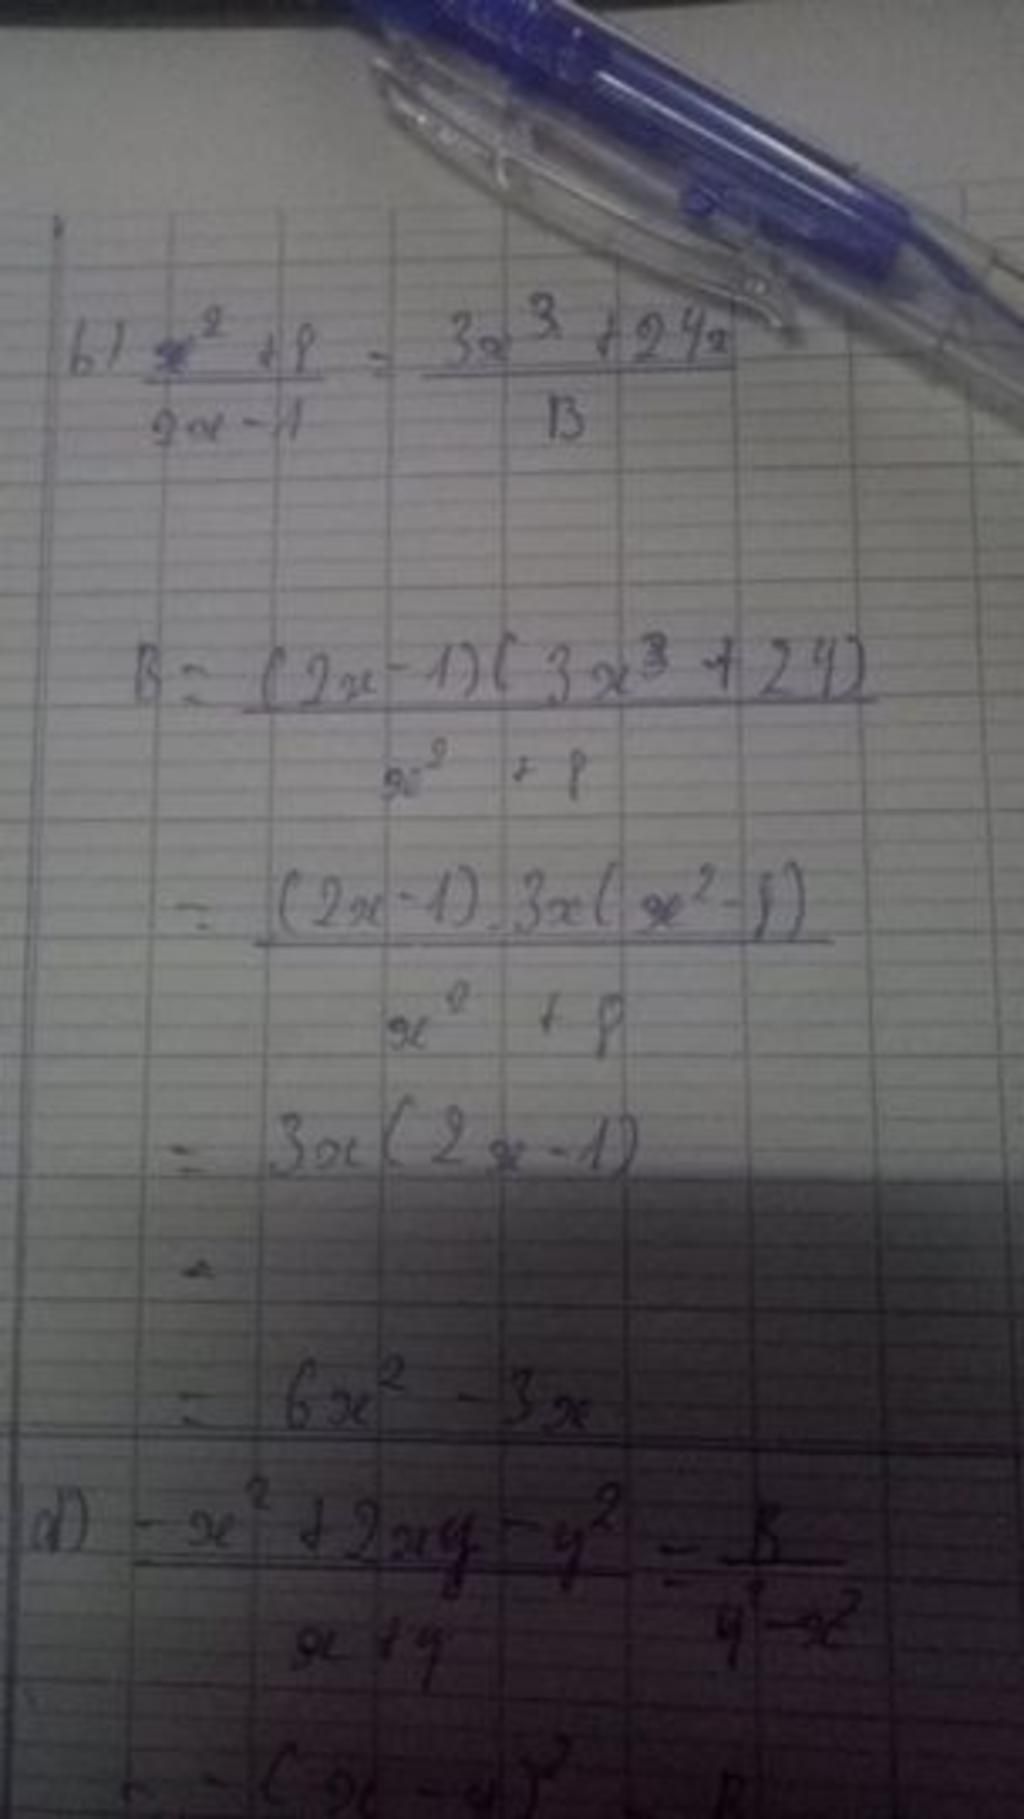 b) x² + 8 / 2x - 1 = 3x³ + 24x / B
B = (2x - 1)(3x³ + 24) / x² + 8
= (2x - 1) . 3x(x² - 8) / x² + 8
= 3x(2x - 1)
=
= 6x² - 3x
d) -x² + 2xy - y² / x + y = B / y² - x²
= -(x - y)²